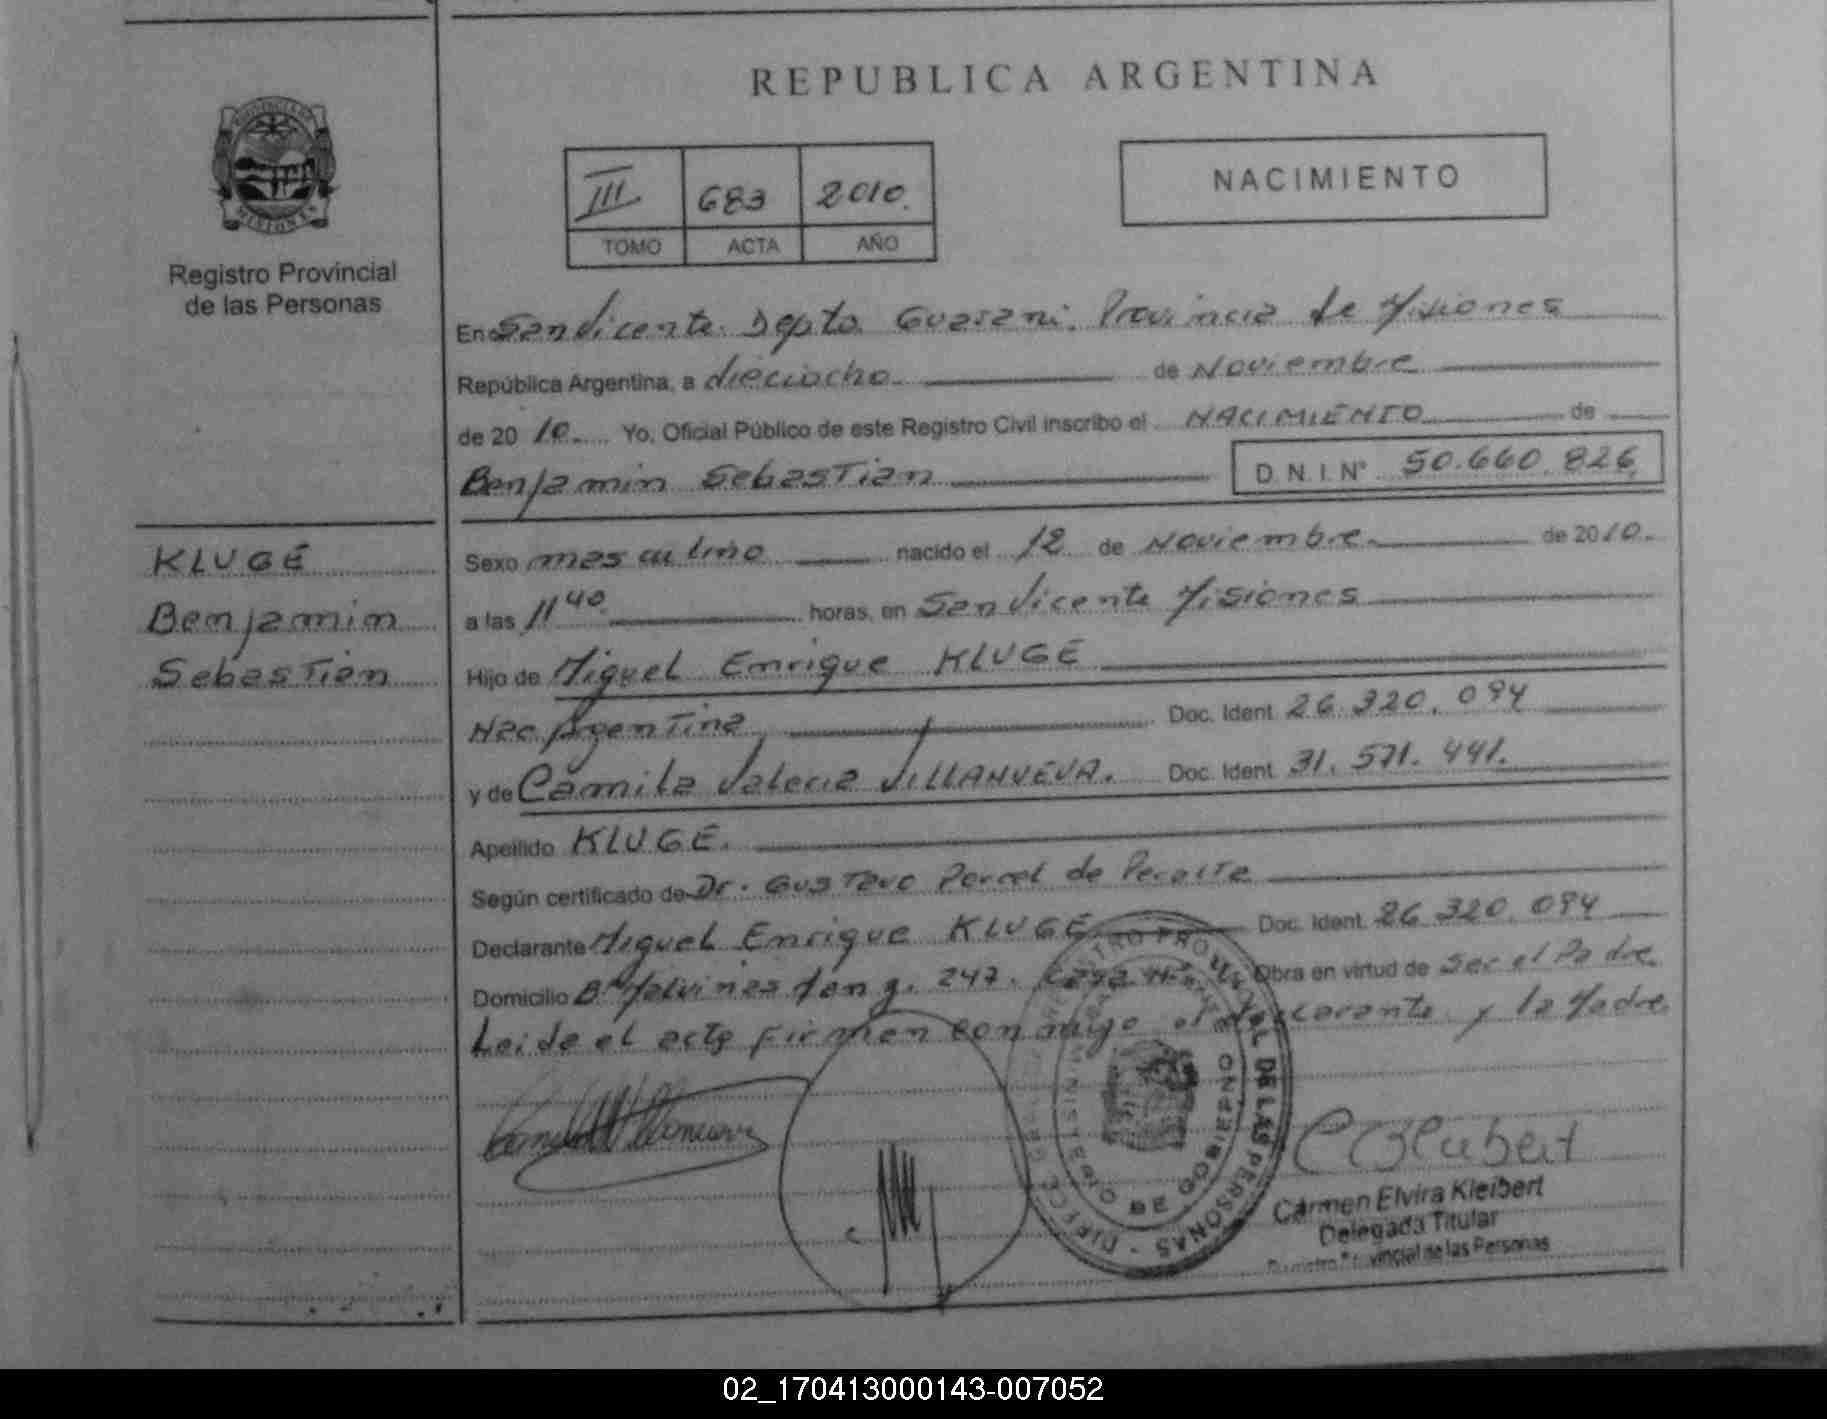 REPUBLICA ARGENTINA
PROVINCIA DE
MISIONES
Registro Provincial
de las Personas
III 683 2010.
TOMO ACTA AÑO
NACIMIENTO
En San Vicente. Depto. Guarani. Provincia de Misiones
República Argentina, a dieciocho de Noviembre
de 20 10. Yo, Oficial Público de este Registro Civil inscribo el NACIMIENTO de
Benjamin Sebastian D.N.I.N° 50.660.826,
KLUGE
Benjamin
Sebastian
Sexo masculino nacido el 12 de Noviembre. de 2010.
a las 11 40 horas, en San Vicente Misiones
Hijo de Miguel Enrique KLUGE
Nac. Argentina Doc. Ident. 26.320.094
y de Camila Valeria VILLANUEVA. Doc. Ident. 31.571.441.
Apellido KLUGE.
Según certificado de Dr. Gustavo Porcel de Peralta
Declarante Miguel Enrique KLUGE Doc. Ident. 26.320.094
Domicilio B° Malvinas Manz. 247. Casa N° Obra en virtud de Ser el Padre.
Leida el acta firman conmigo el declarante y la Madre.
Camila Villanueva
DE LAS PERSONAS
MINISTERIO DE GOBIERNO
C E Kleibert
Carmen Elvira Kleibert
Delegada Titular
Registro Provincial de las Personas
02_170413000143-007052